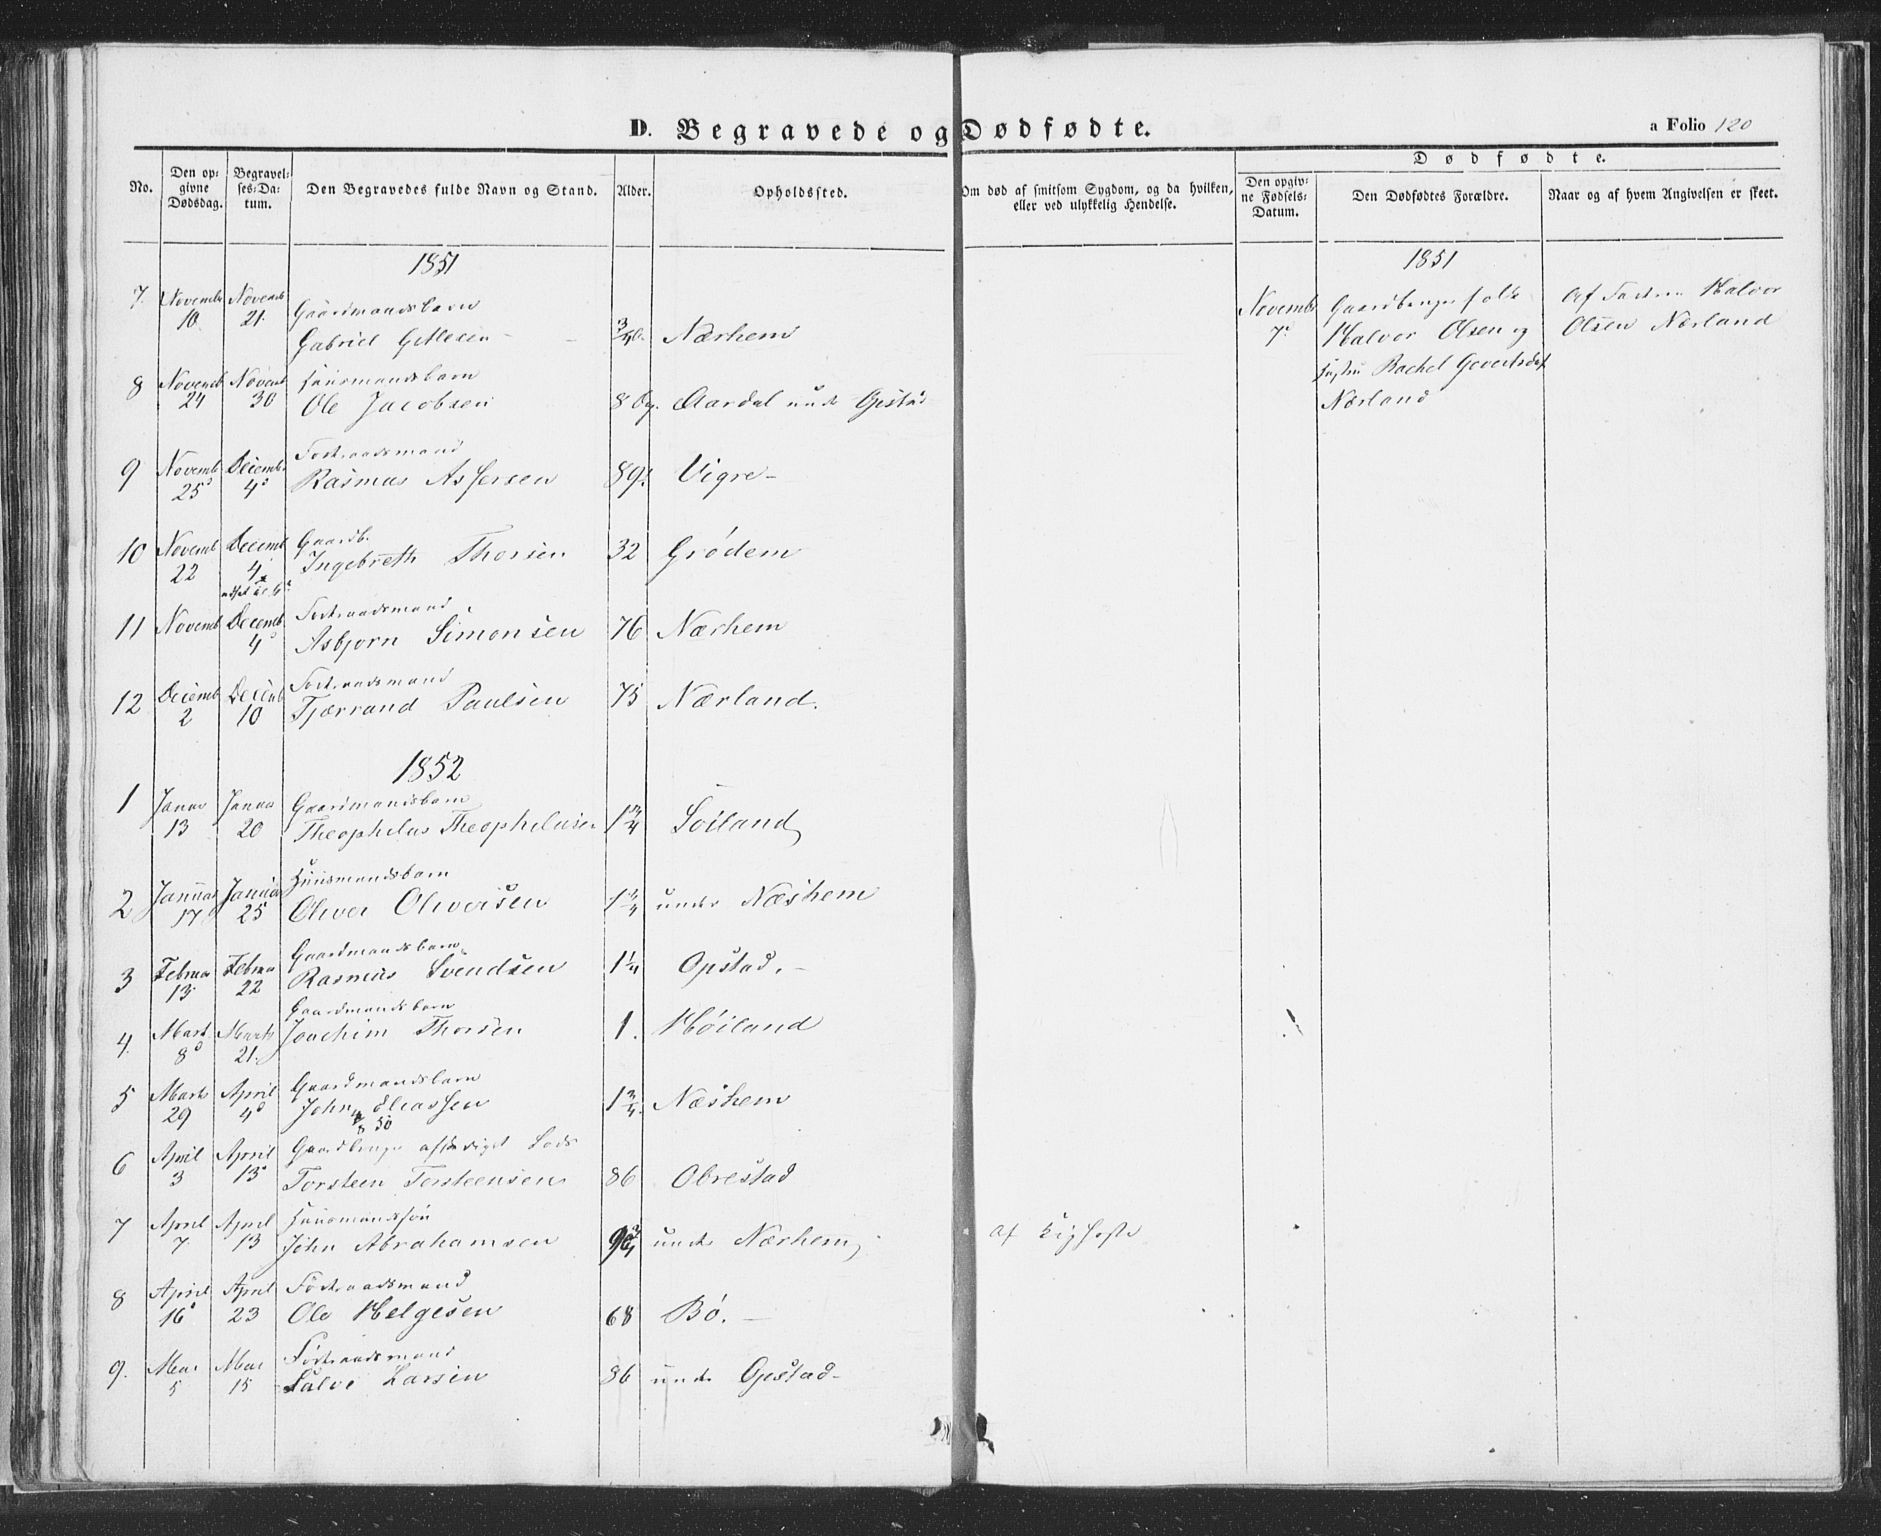 D. Begravede og Dødfødte.
a Folio 120
No.
Den op-
givne
Dødsdag.
Begravel-
ses-Da-
tum.
Den Begravedes fulde Navn og Stand.
Alder.
Opholdssted.
Om død af smitsom Sygdom, og da hvilken,
eller ved ulykkelig Hendelse.
Dødfødte.
Den opgiv-
ne Fødsels-
Datum.
Den Dødfødtes Forældre.
Naar og af hvem Angivelsen er skeet.
1851
7. Novemb Novemb Gaardmandsbarn
10. 21. Gabriel Nærhem
8 Novemb Novemb Huusmandsbarn
24 30 Ole Jacobsen 8 Dg. Aardal under Opstad
9 Novemb Decemb.
25 4 Rasmus Assersen 89 Vigre
10 Novemb Decemb Gaardb.
22 4 Ingebreth Thorsen 32 Grødem
11 Novemb Decemb
4 Asbjorn Simonsen 76 Nærhem
12 Decemb Decemb
2 10 Tjærrand Paulsen 75 Nærland.
1852
1 Januar Januar Gaardmandsbarn
13 20 Theophilus Theophilusen 1 3/4 Søiland
2 Januar Januar Huusmandsbarn
17 25 Oliver Oliversen under Næshem
3 Februar Februar Gaardmandsbarn
13 22 Rasmus Svendsen 1 1/4 Opstad.
4. Marts Marts Gaardmandsbarn
8 21. Joachim Thorsen 1. Høiland
5 Marts April Gaardmandsbarn
29 4 John Eliassen 1 3/4 Næshem
6 April April Gaardbruger Lods
3 13 Torsteen Torsteensen 86 Obrestad
7 April April Huusmandssøn
7 13 John Abrahamsen under Nærhem af Kighoste
8 April April
16 23 Ole Helgesen 68 Bø.
9. Mai Mai
5 15 Salve Larsen 86 under Opstad
1851
Novemb Gaardbrugerfolk
7 Halvor Olsen og
Hustru Rachel
Nærland
Af Faderen Halvor
Olsen Nærland